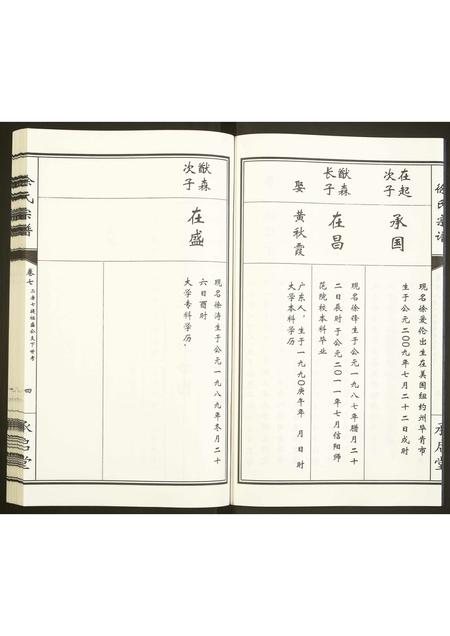 徐氏宗谱
承启堂
在起
次子
承国
现名徐爱伦出生在美国纽约州毕肯市
生于公元二00九年七月二十二日戌时
猷森
长子
在昌
现名徐锋生于公元一九八七年腊月二十
二日辰时于公元二0一一年七月信阳师
范院校本科毕业
娶
黄秋霞
广东人，生于一九九0庚午年 月 日时
大学本科学历
猷森
次子
在盛
现名徐涛生于公元一九八九年冬月二十
六日酉时
大学专科学历，
徐氏宗谱
卷七
四
承启堂